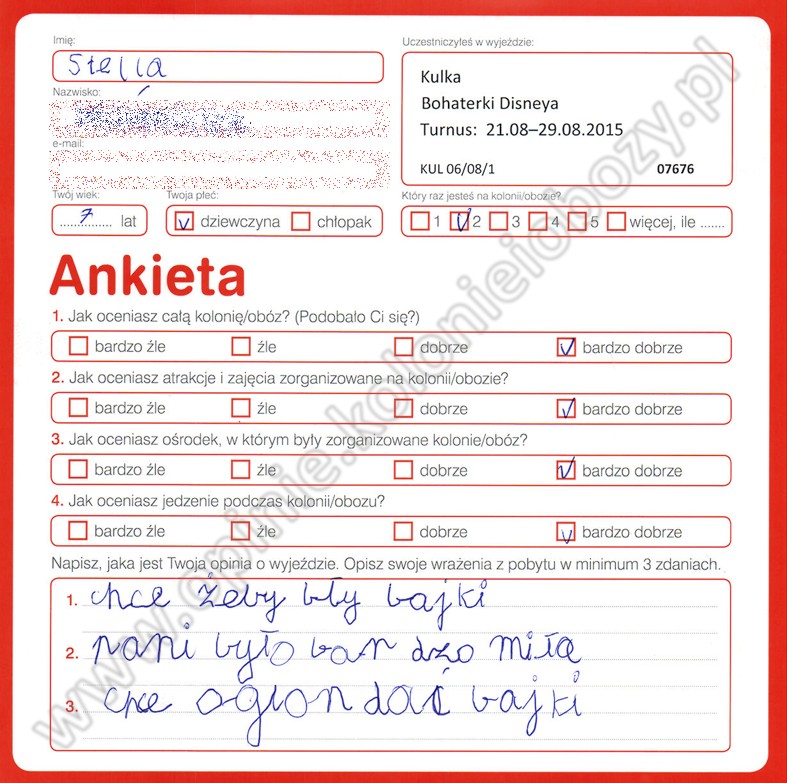 Imię:
Stella
Uczestniczyłeś w wyjeździe:
Kulka
Bohaterki Disneya
Turnus: 21.08–29.08.2015
KUL 06/08/1 07676
Nazwisko:
e-mail:
Twój wiek:
7 lat
Twoja płeć:
dziewczyna chłopak
Który raz jesteś na kolonii/obozie?
1 2 3 4 5 więcej, ile .......
Ankieta
1. Jak oceniasz całą kolonię/obóz? (Podobało Ci się?)
bardzo źle źle dobrze bardzo dobrze
2. Jak oceniasz atrakcje i zajęcia zorganizowane na kolonii/obozie?
bardzo źle źle dobrze bardzo dobrze
3. Jak oceniasz ośrodek, w którym były zorganizowane kolonie/obóz?
bardzo źle źle dobrze bardzo dobrze
4. Jak oceniasz jedzenie podczas kolonii/obozu?
bardzo źle źle dobrze bardzo dobrze
Napisz, jaka jest Twoja opinia o wyjeździe. Opisz swoje wrażenia z pobytu w minimum 3 zdaniach.
1. chce żeby bły bajki
2. pani było bar dzo miła
3. chce oglondać bajki
www.opinie.kolonieiobozy.pl